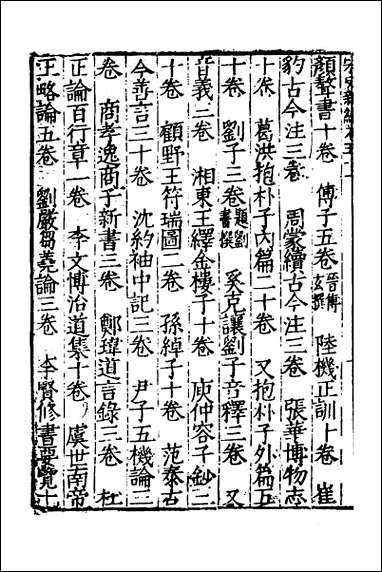 顏書十卷 傅子五卷 晉傅玄撰 陸機正訓十卷 崔
豹古今注三卷 周蒙續古今注三卷 張華博物志
十卷 葛洪抱朴子內篇二十卷 又抱朴子外篇五
十卷 劉子三卷 題劉書撰 奚克讓劉子音釋三卷 又
音義三卷 湘東王繹金樓子十卷 庾仲容子鈔三
十卷 顧野王符瑞圖二卷 孫綽子十卷 范泰古
今善言三十卷 沈約袖中記三卷 尹子五機論三
卷 商孝逸商子新書三卷 鄭瑋道言錄三卷 杜
正論百行章一卷 李文博治道集十卷 虞世南帝
王略論五卷 劉嚴芻蕘論三卷 李賢修書要覽十